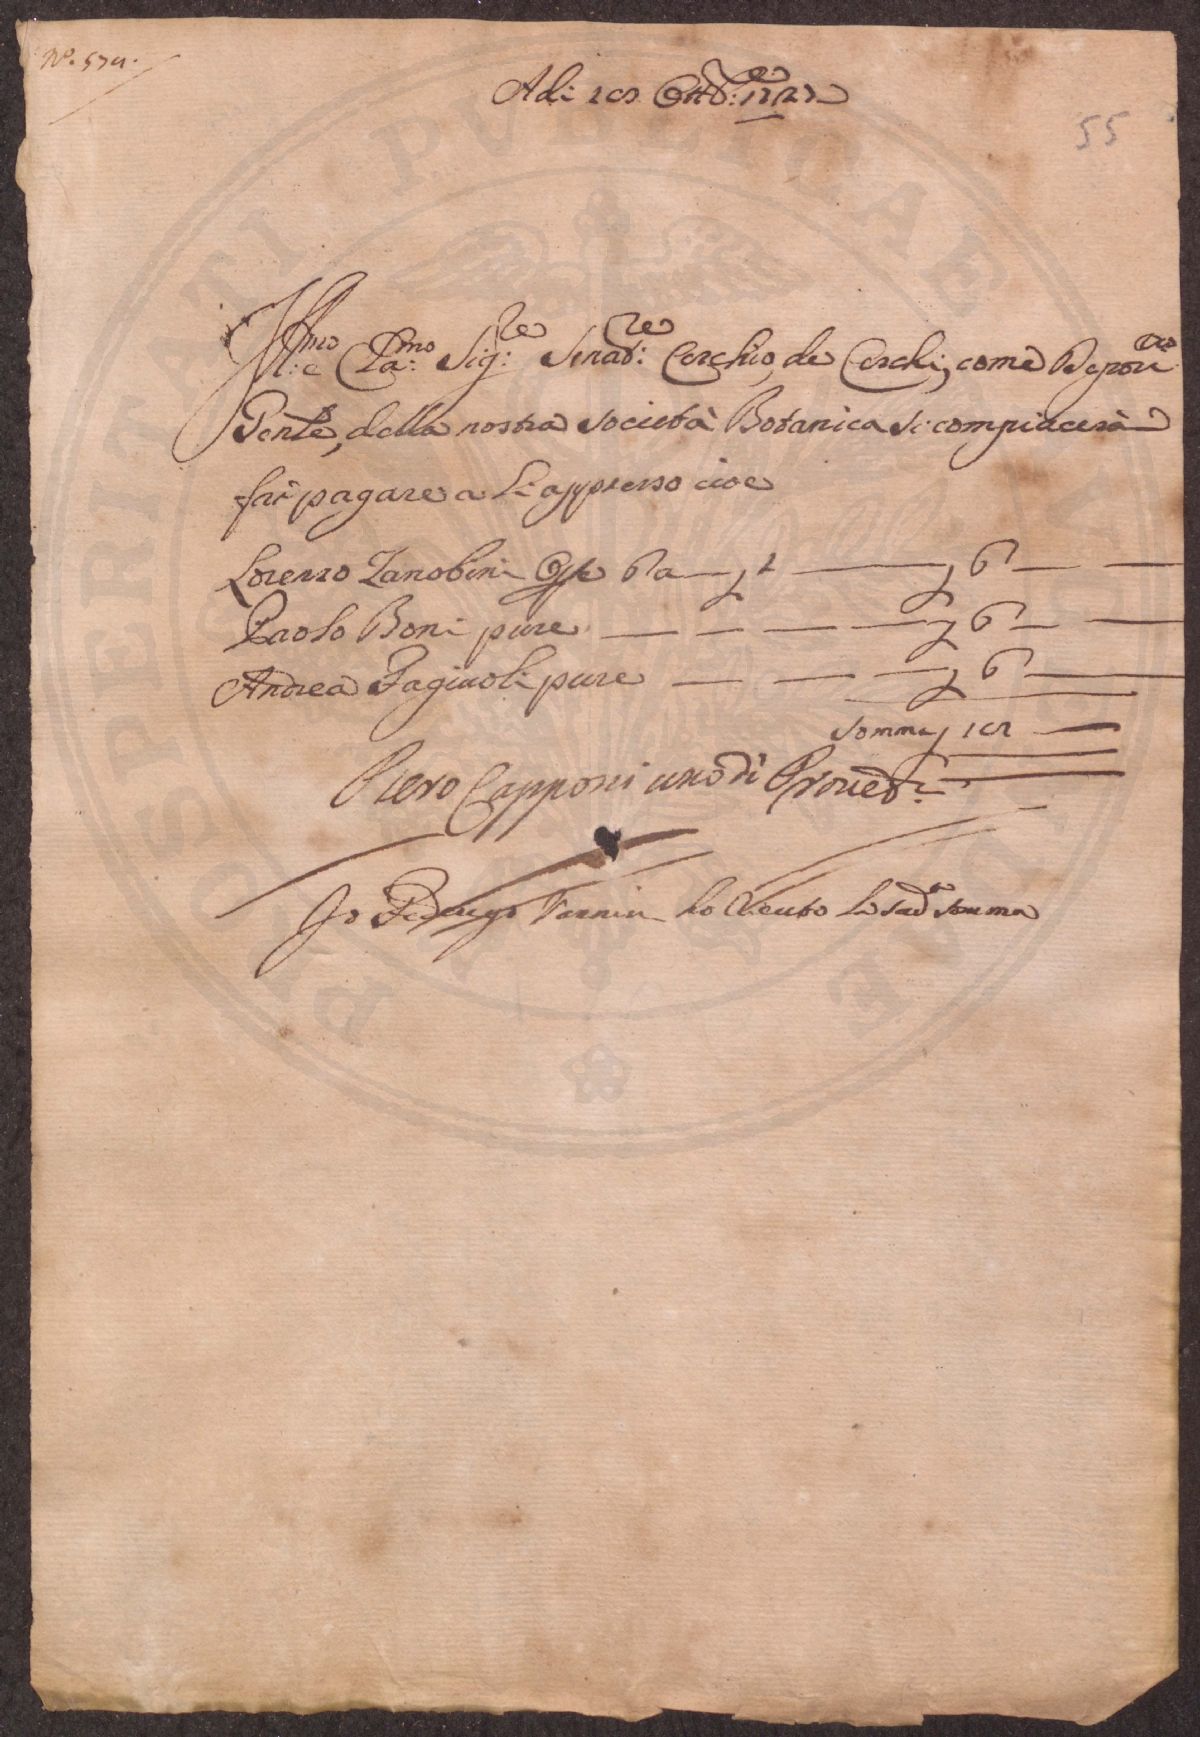 N.º 574.
Adi 18 Ottb.e: 1727
55
Ill:mo e Cla:mo Sig:re Senat:re Cerchio, de Cerchi, come Depositario
Gente, della nostra società Botanica si compiacerà
far pagare a li appresso cioe
Lorenzo Zanobini Opre 6 a 1 6
Paolo Boni pure 6
Andrea Fagiuoli pure 6
Somma 18
Piero Capponi uno di Proued:ri
Io Federigo Vannini ho riceuto la sud.a Somma
PROSPERITATI PVBLICAE AVGENDAE